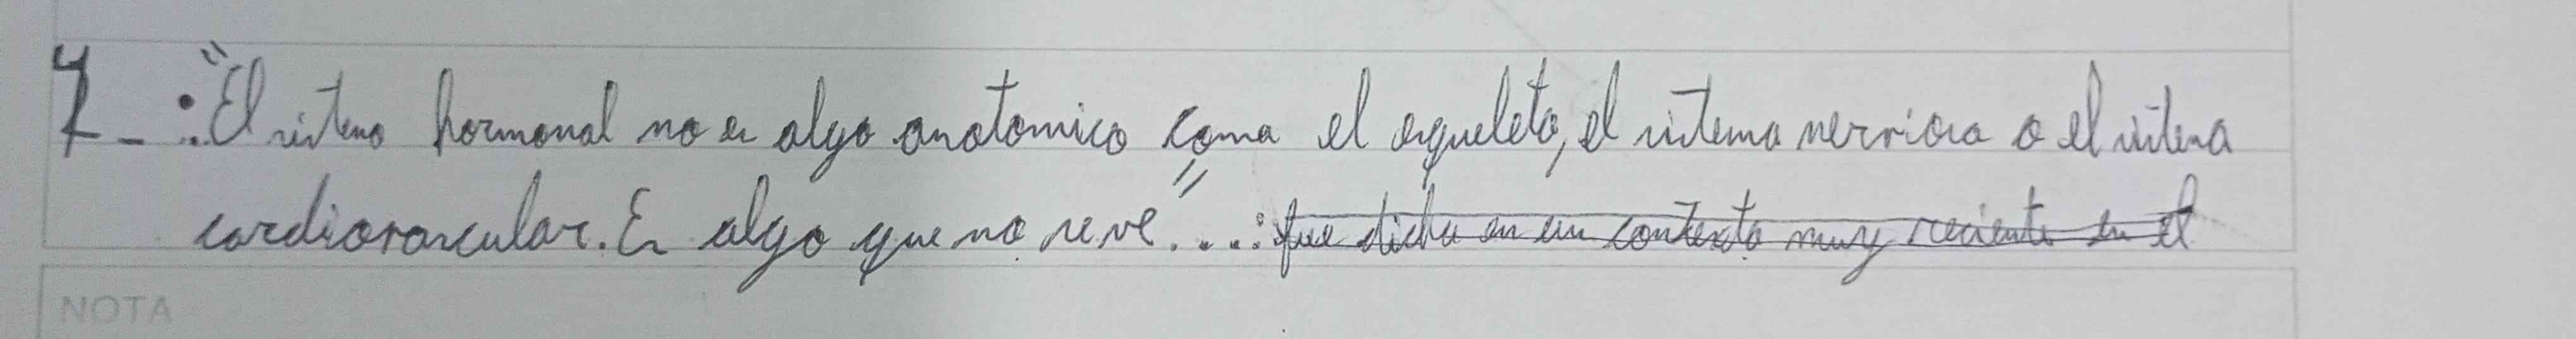 7-.:"El sistema hormonal no es algo anatomico como el esqueleto, el sistema nervioso o el sistema
cardiovascular. Es algo que no se ve."...: fue dicho en un contexto muy reciente en el
NOTA